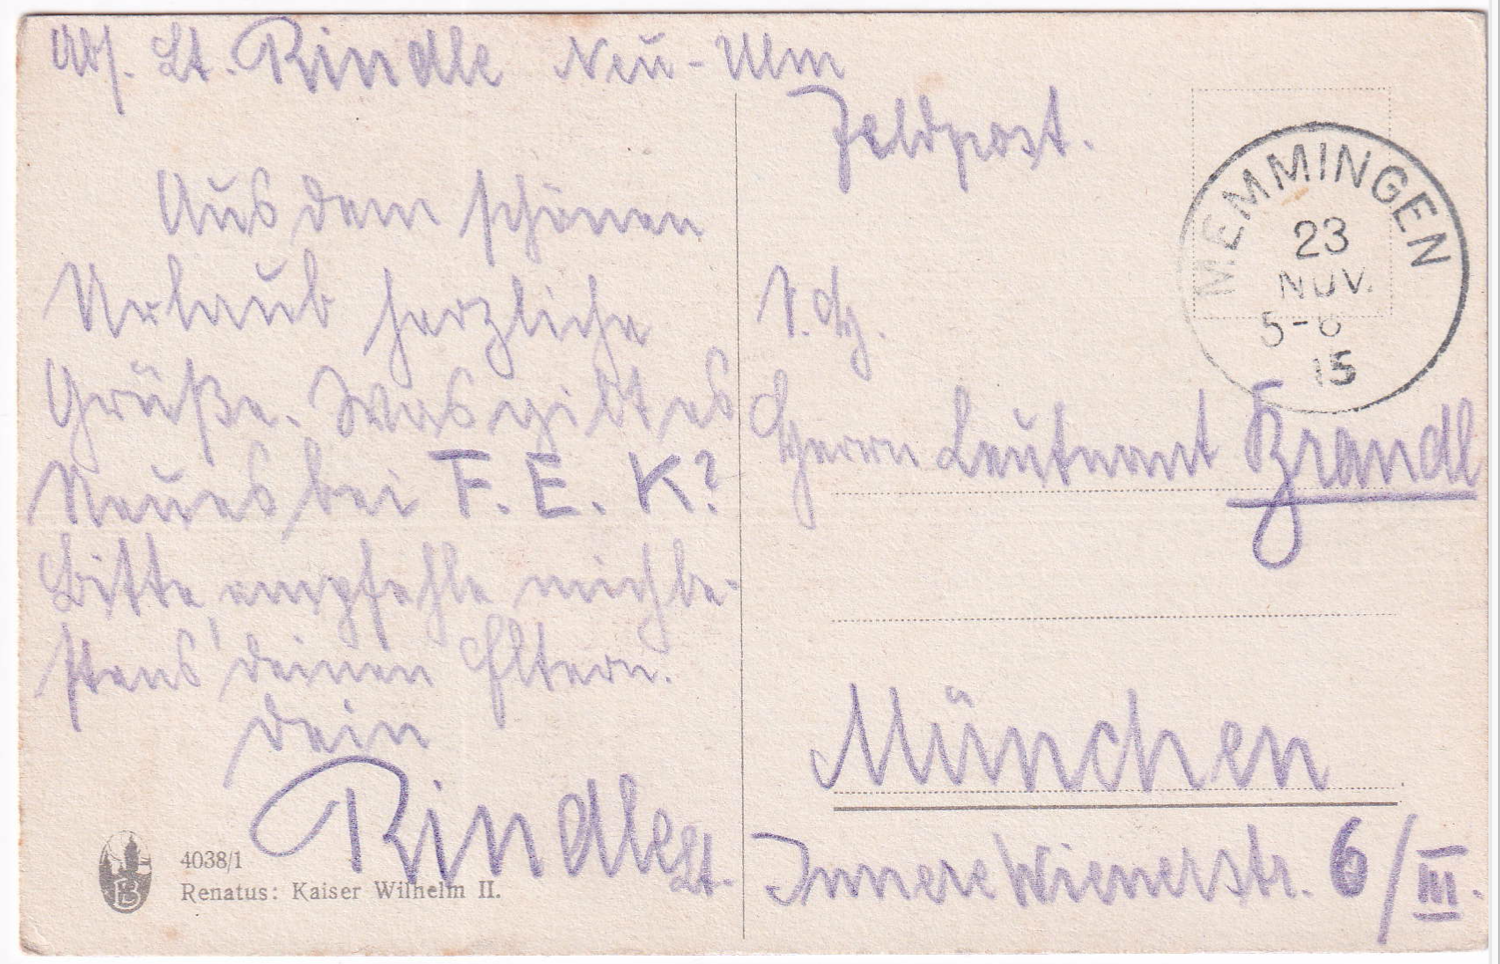 Abs. Lt. Rindle Neu-Ulm
Feldpost.
Aus dem schönen
Urlaub herzliche
Grüße. Was gibt es
Neues bei F. E. K?
Bitte empfehle mich be-
stens deinen Eltern.
Dein
Rindle Lt.
4038/1
Renatus: Kaiser Wilhelm II.
MEMMINGEN
23
NOV.
5-6
15
Herrn Leutnant Brandl
München
Innere Wienerstr. 6/III.